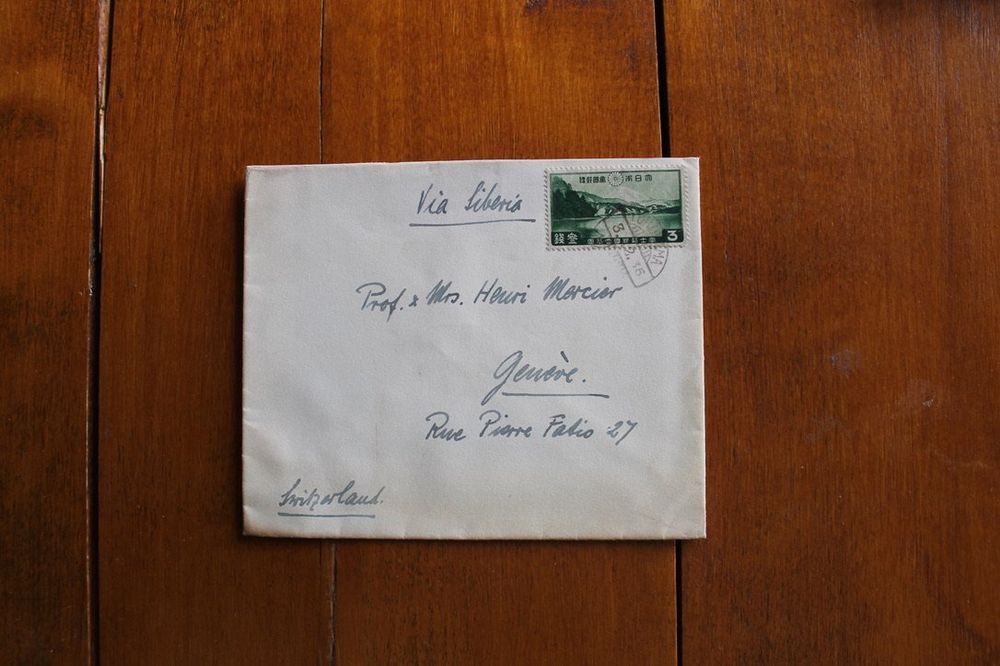 Via Siberia
大日本帝國郵便
参錢 3
Prof. & Mrs. Henri Mercier
Genève.
Rue Pierre Fatio 27
Switzerland.